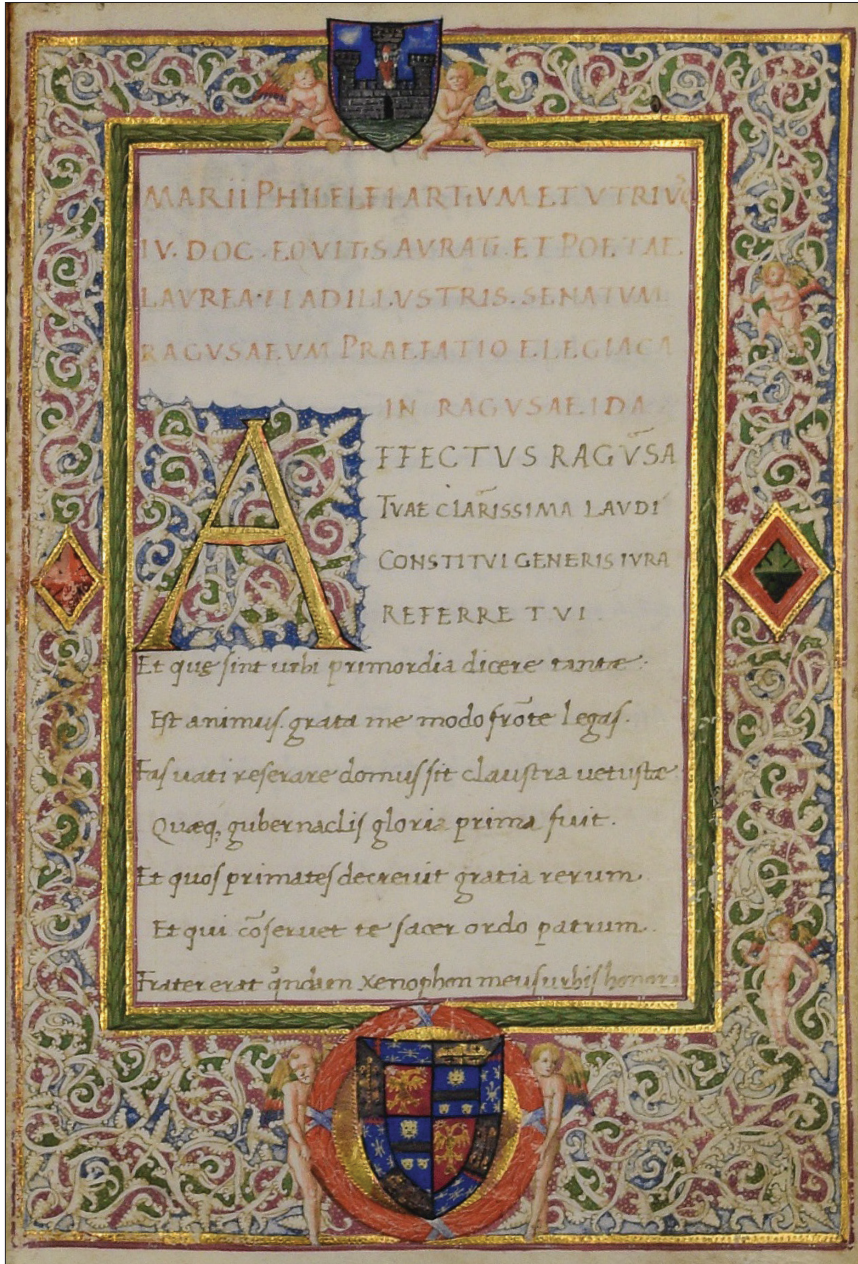 MARII PHILELFI ARTIVM ET VTRIVQ̃
IV. DOC. EQVITIS AVRATI. ET POETAE
LAVREATI AD ILLVSTRIS. SENATVM
RAGVSAEVM PRAEFATIO ELEGIACA
IN RAGVSAEIDA
AFFECTVS RAGṼSA
TVAE CLARISSIMA LAVDI
CONSTITVI GENERIS IVRA
REFERRE TVI.
Et quę sint urbi primordia dicere tantæ:
Est animus. grata me modo frõte legas.
Fas uati reserare domus sit claustra uetustæ
Quæq; gubernaclis gloria prima fuit.
Et quos primates decreuit gratia rerum.
Et qui cõseruet te sacer ordo patrum.
Frater erat q̊ndam xenophon meus urbis